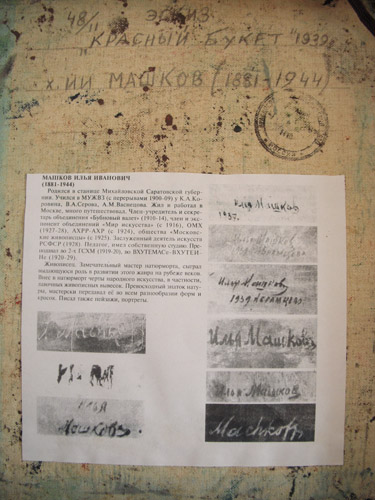 48/11 ЭСКИЗ
"КРАСНЫЙ БУКЕТ" 1939
Х. ИИ МАШКОВ (1881-1944)
МАШКОВ ИЛЬЯ ИВАНОВИЧ
(1881-1944)
Родился в станице Михайловской Саратовской губер-
нии. Учился в МУЖВЗ (с перерывами 1900-09) у К.А.Ко-
ровина, В.А.Серова, А.М.Васнецова. Жил и работал в
Москве, много путешествовал. Член-учредитель и секре-
тарь объединения «Бубновый валет» (1910-14), член и экс-
понент объединений «Мир искусства» (с 1916), ОМХ
(1927-28), АХРР-АХР (с 1924), общества «Московс-
кие живописцы» (с 1925). Заслуженный деятель искусств
РСФСР (1928). Педагог, имел собственную студию. Пре-
подавал во 2-х ГСХМ (1919-20), во ВХУТЕМАСе-ВХУТЕИ-
Не (1920-29).
Живописец. Замечательный мастер натюрморта, сыграл
выдающуюся роль в развитии этого жанра на рубеже веков.
Внес в натюрморт черты народного искусства, в частности,
лавочных живописных вывесок. Превосходный знаток нату-
ры, мастерски передавал её во всем разнообразии форм и
красок. Писал также пейзажи, портреты.
Илья Машков
1935.
Илья Машков
1939
Илья Машковъ
Илья Машков
Илья
Машковъ
Machkoff